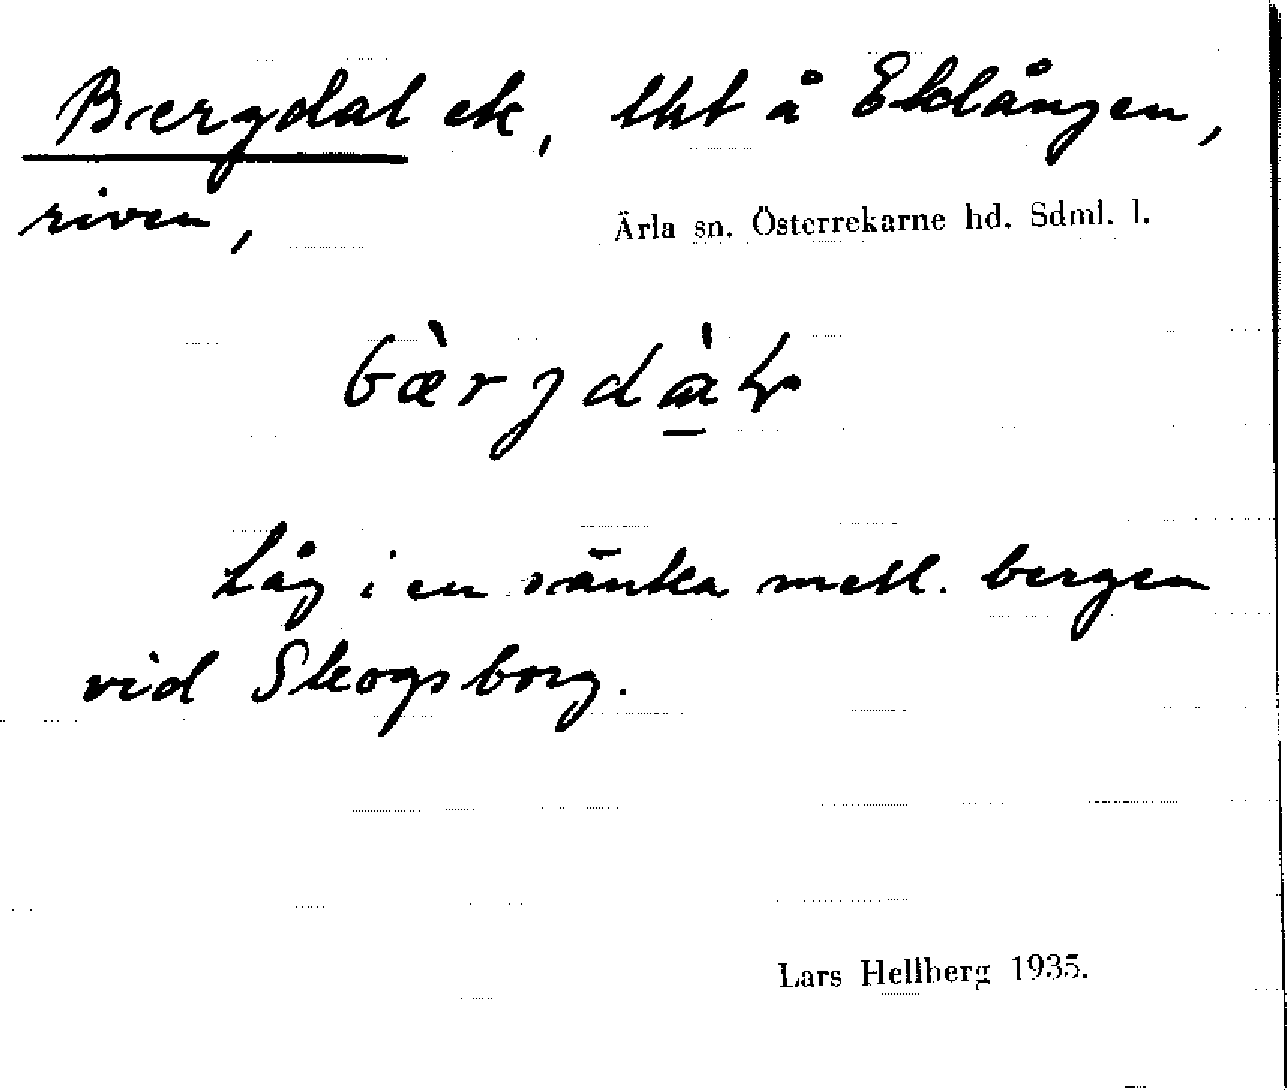 Bergdal ek, tkt å Eklången,
riven,
Ärla sn. Österrekarne hd. Sdml. l.
bæ̀rjdà̱ḷ
Låg i en sänka mell. bergen
vid Skogsborg.
Lars Hellberg 1935.